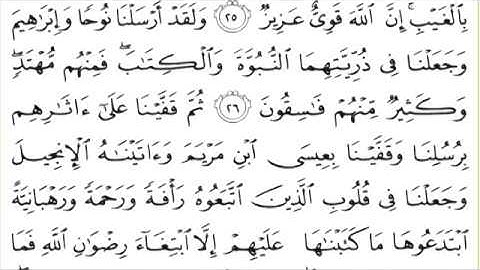 بِالْغَيْبِ ۚ إِنَّ اللَّهَ قَوِيٌّ عَزِيزٌ ﴿٢٥﴾ وَلَقَدْ أَرْسَلْنَا نُوحًا وَإِبْرَاهِيمَ
وَجَعَلْنَا فِي ذُرِّيَّتِهِمَا النُّبُوَّةَ وَالْكِتَابَ ۖ فَمِنْهُم مُّهْتَدٍ ۖ
وَكَثِيرٌ مِّنْهُمْ فَاسِقُونَ ﴿٢٦﴾ ثُمَّ قَفَّيْنَا عَلَىٰ ءَاثَارِهِم
بِرُسُلِنَا وَقَفَّيْنَا بِعِيسَى ابْنِ مَرْيَمَ وَءَاتَيْنَاهُ الْإِنجِيلَ
وَجَعَلْنَا فِي قُلُوبِ الَّذِينَ اتَّبَعُوهُ رَأْفَةً وَرَحْمَةً وَرَهْبَانِيَّةً
ابْتَدَعُوهَا مَا كَتَبْنَاهَا عَلَيْهِمْ إِلَّا ابْتِغَاءَ رِضْوَانِ اللَّهِ فَمَا